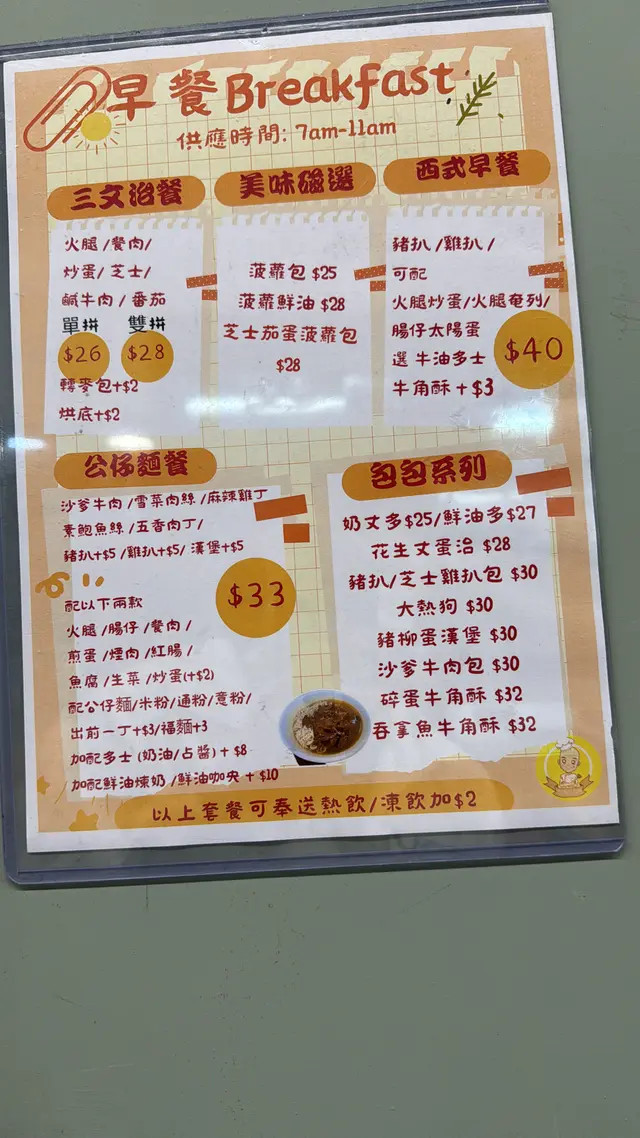 早餐Breakfast
供應時間: 7am-11am
三文治餐
火腿/餐肉/
炒蛋/芝士/
鹹牛肉/番茄
單拼 雙拼
$26 $28
轉麥包+$2
烘底+$2
美味磁選
菠蘿包 $25
菠蘿鮮油 $28
芝士茄蛋菠蘿包
$28
西式早餐
豬扒/雞扒/
可配
火腿炒蛋/火腿奄列/
腸仔太陽蛋
選 牛油多士
牛角酥 +$3
$40
公仔麵餐
沙爹牛肉/雪菜肉絲/麻辣雞丁
素鮑魚絲/五香肉丁/
豬扒+$5/雞扒+$5/ 漢堡+$5
$33
配以下兩款
火腿/腸仔/餐肉/
煎蛋/煙肉/紅腸/
魚腐/生菜/炒蛋(+$2)
配公仔麵/米粉/通粉/意粉/
出前一丁+$3/福麵+3
加配多士(奶油/占醬)+ $8
加配鮮油煉奶/鮮油咖央 + $10
包包系列
奶丈多$25/鮮油多$27
花生丈蛋治 $28
豬扒/芝士雞扒包 $30
大熱狗 $30
豬柳蛋漢堡 $30
沙爹牛肉包 $30
碎蛋牛角酥 $32
吞拿魚牛角酥 $32
以上套餐可奉送熱飲/凍飲加$2